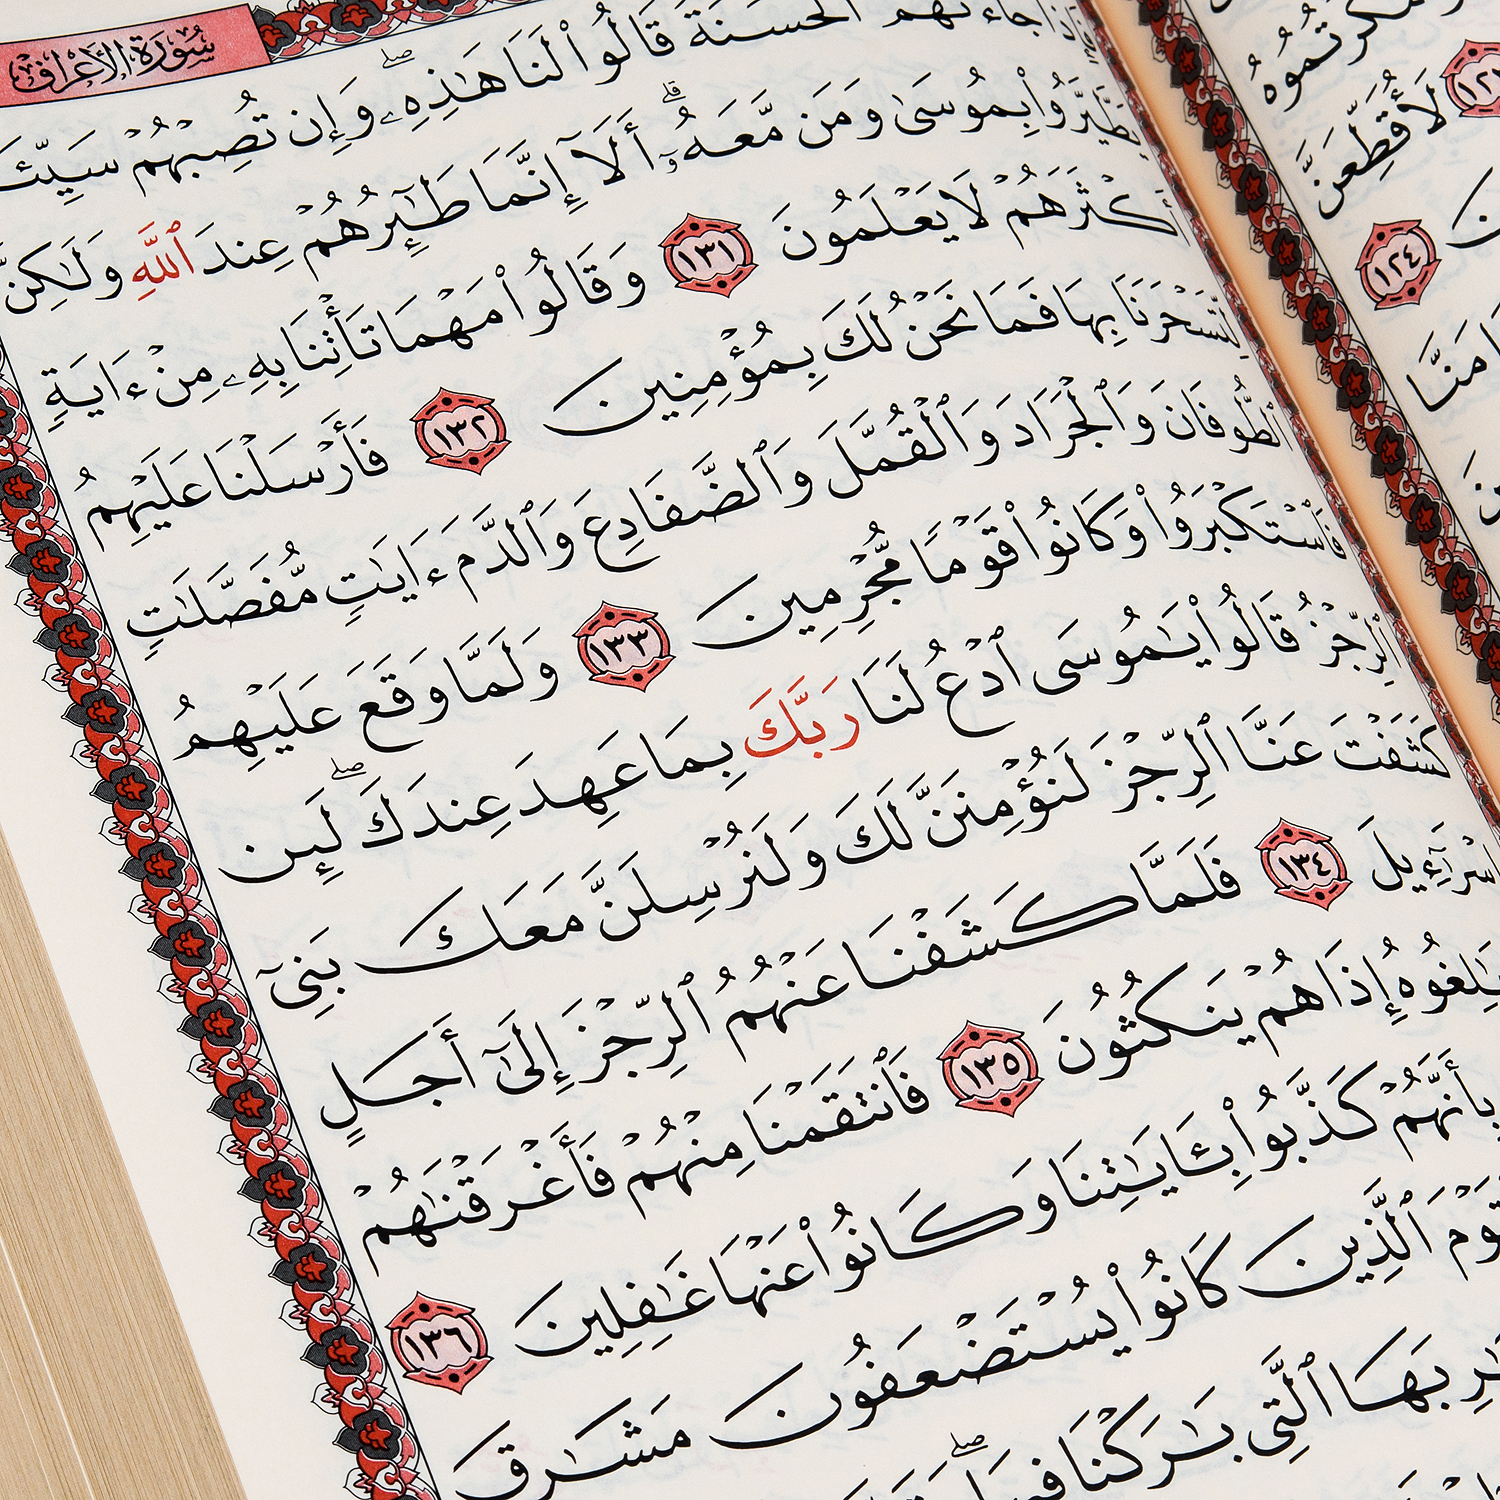 سُورَةُ الأَعْرَافِ
جَاءَتْهُمُ الْحَسَنَةُ قَالُوا۟ لَنَا هَـٰذِهِۦ ۖ وَإِن تُصِبْهُمْ سَيِّئَـ
يَطَّيَّرُوا۟ بِمُوسَىٰ وَمَن مَّعَهُۥٓ ۗ أَلَآ إِنَّمَا طَـٰٓئِرُهُمْ عِندَ ٱللَّهِ وَلَـٰكِنَّ
أَكْثَرَهُمْ لَا يَعْلَمُونَ ١٣١ وَقَالُوا۟ مَهْمَا تَأْتِنَا بِهِۦ مِنْ ءَايَةٍ
لِّتَسْحَرَنَا بِهَا فَمَا نَحْنُ لَكَ بِمُؤْمِنِينَ ١٣٢ فَأَرْسَلْنَا عَلَيْهِمُ
ٱلطُّوفَانَ وَٱلْجَرَادَ وَٱلْقُمَّلَ وَٱلضَّفَادِعَ وَٱلدَّمَ ءَايَـٰتٍ مُّفَصَّلَـٰتٍ
فَٱسْتَكْبَرُوا۟ وَكَانُوا۟ قَوْمًا مُّجْرِمِينَ ١٣٣ وَلَمَّا وَقَعَ عَلَيْهِمُ
ٱلرِّجْزُ قَالُوا۟ يَـٰمُوسَى ٱدْعُ لَنَا رَبَّكَ بِمَا عَهِدَ عِندَكَ ۖ لَئِن
كَشَفْتَ عَنَّا ٱلرِّجْزَ لَنُؤْمِنَنَّ لَكَ وَلَنُرْسِلَنَّ مَعَكَ بَنِىٓ
إِسْرَٰٓءِيلَ ١٣٤ فَلَمَّا كَشَفْنَا عَنْهُمُ ٱلرِّجْزَ إِلَىٰٓ أَجَلٍ
بَـٰلِغُوهُ إِذَا هُمْ يَنكُثُونَ ١٣٥ فَٱنتَقَمْنَا مِنْهُمْ فَأَغْرَقْنَـٰهُمْ
بِأَنَّهُمْ كَذَّبُوا۟ بِـَٔايَـٰتِنَا وَكَانُوا۟ عَنْهَا غَـٰفِلِينَ ١٣٦
ٱلْقَوْمَ ٱلَّذِينَ كَانُوا۟ يُسْتَضْعَفُونَ مَشَـٰرِقَ
بِهَا ٱلَّتِى بَـٰرَكْنَا فِيهَا ۖ
كَرْتُمُوهُ
١٢٣ لَأُقَطِّعَنَّ
١٢٤
ءَامَنَّا